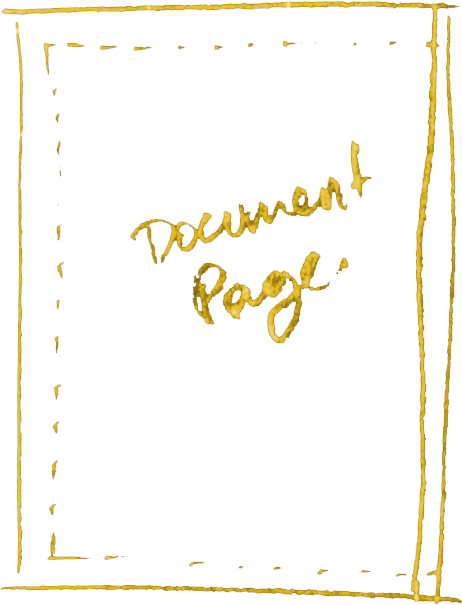 Document
Page.